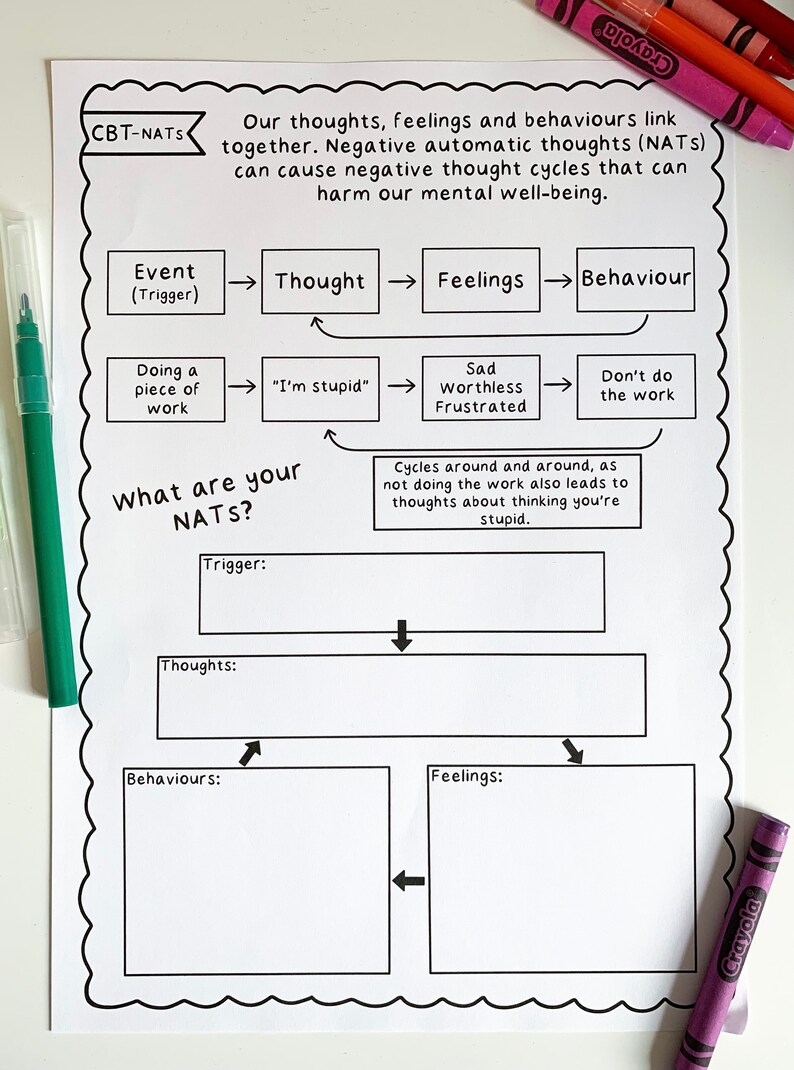 Crayola
CBT-NATs
Our thoughts, feelings and behaviours link
together. Negative automatic thoughts (NATs)
can cause negative thought cycles that can
harm our mental well-being.
Event
(Trigger)
Thought
Feelings
Behaviour
Doing a
piece of
work
"I'm stupid"
Sad
Worthless
Frustrated
Don't do
the work
Cycles around and around, as
not doing the work also leads to
thoughts about thinking you're
stupid.
What are your
NATs?
Trigger:
Thoughts:
Behaviours:
Feelings:
Crayola